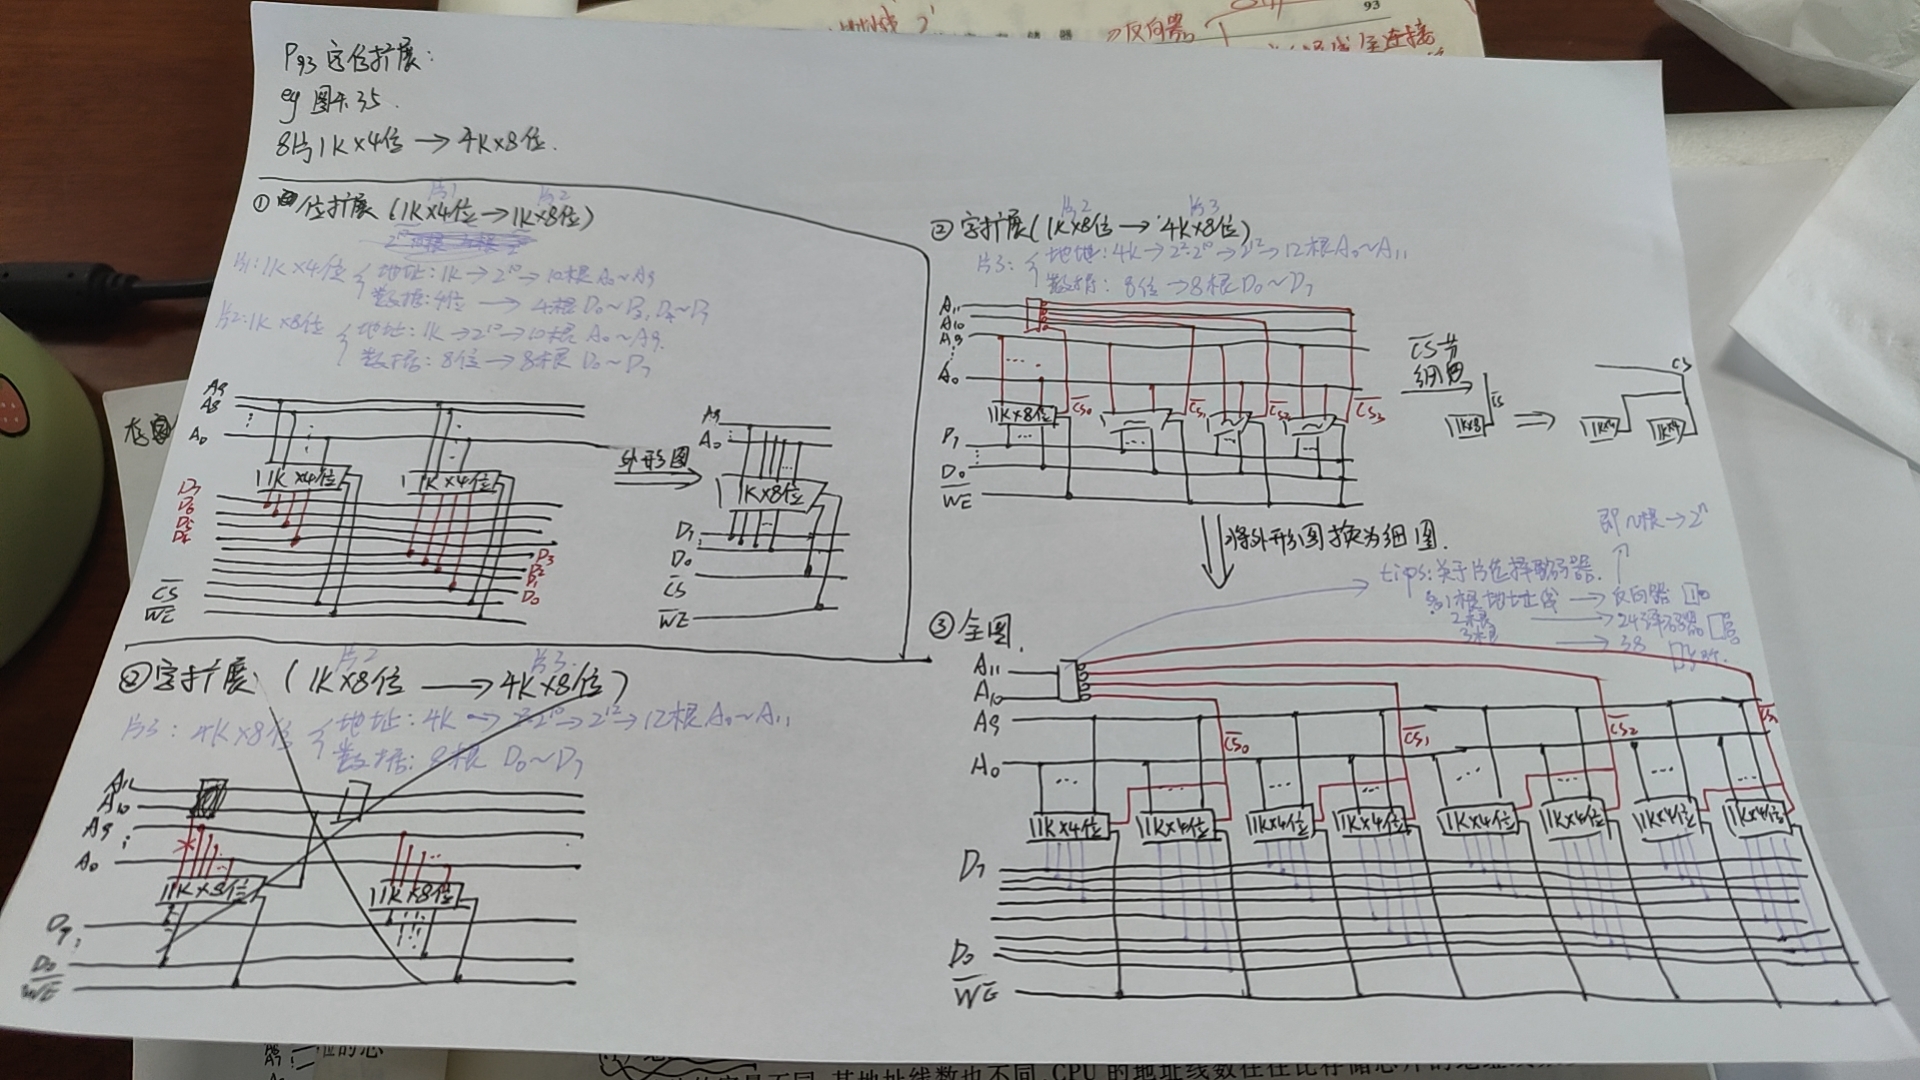 93
反向器
P93 字位扩展：
eg 图4.35.
8片1K×4位 → 4K×8位.
① 位扩展 (1K×4位 → 1K×8位)
片1 片2
片1: 1K×4位 { 地址: 1K → 2^10 → 10根 A0~A9
数据: 4位 → 4根 D0~D3, D4~D7
片2: 1K×8位 { 地址: 1K → 2^10 → 10根 A0~A9.
数据: 8位 → 8根 D0~D7
A9
A8
A0
1K×4位 1K×4位
D7
D6
D5
D4
D3
D2
D1
D0
CS
WE
外形图
A9
A0
1K×8位
D7
D0
CS
WE
② 字扩展: (1K×8位 → 4K×8位)
片2 片3:
片3: 4K×8位 { 地址: 4K → 2^2·2^10 → 2^12 → 12根 A0~A11
数据: 8根 D0~D7
A11
A10
A9
A0
1K×8位 1K×8位
D7
D0
WE
② 字扩展 (1K×8位 → 4K×8位)
片2 片3
片3: { 地址: 4K → 2^2·2^10 → 2^12 → 12根 A0~A11
数据: 8位 → 8根 D0~D7
A11
A10
A9
A0
1K×8位 CS0 CS1 CS2 CS3
D7
D0
WE
CS节
细图
CS
1K×8
CS
1K×4 1K×4
将外形图换为细图.
即n根 → 2^n
tips: 关于片选择译码器.
1根地址线 → 反向器
2根 → 24译码器
3根 → 38
③ 全图
A11
A10
A9
A0
CS0 CS1 CS2
1K×4位 1K×4位 1K×4位 1K×4位 1K×4位 1K×4位 1K×4位 1K×4位
D7
D0
WE